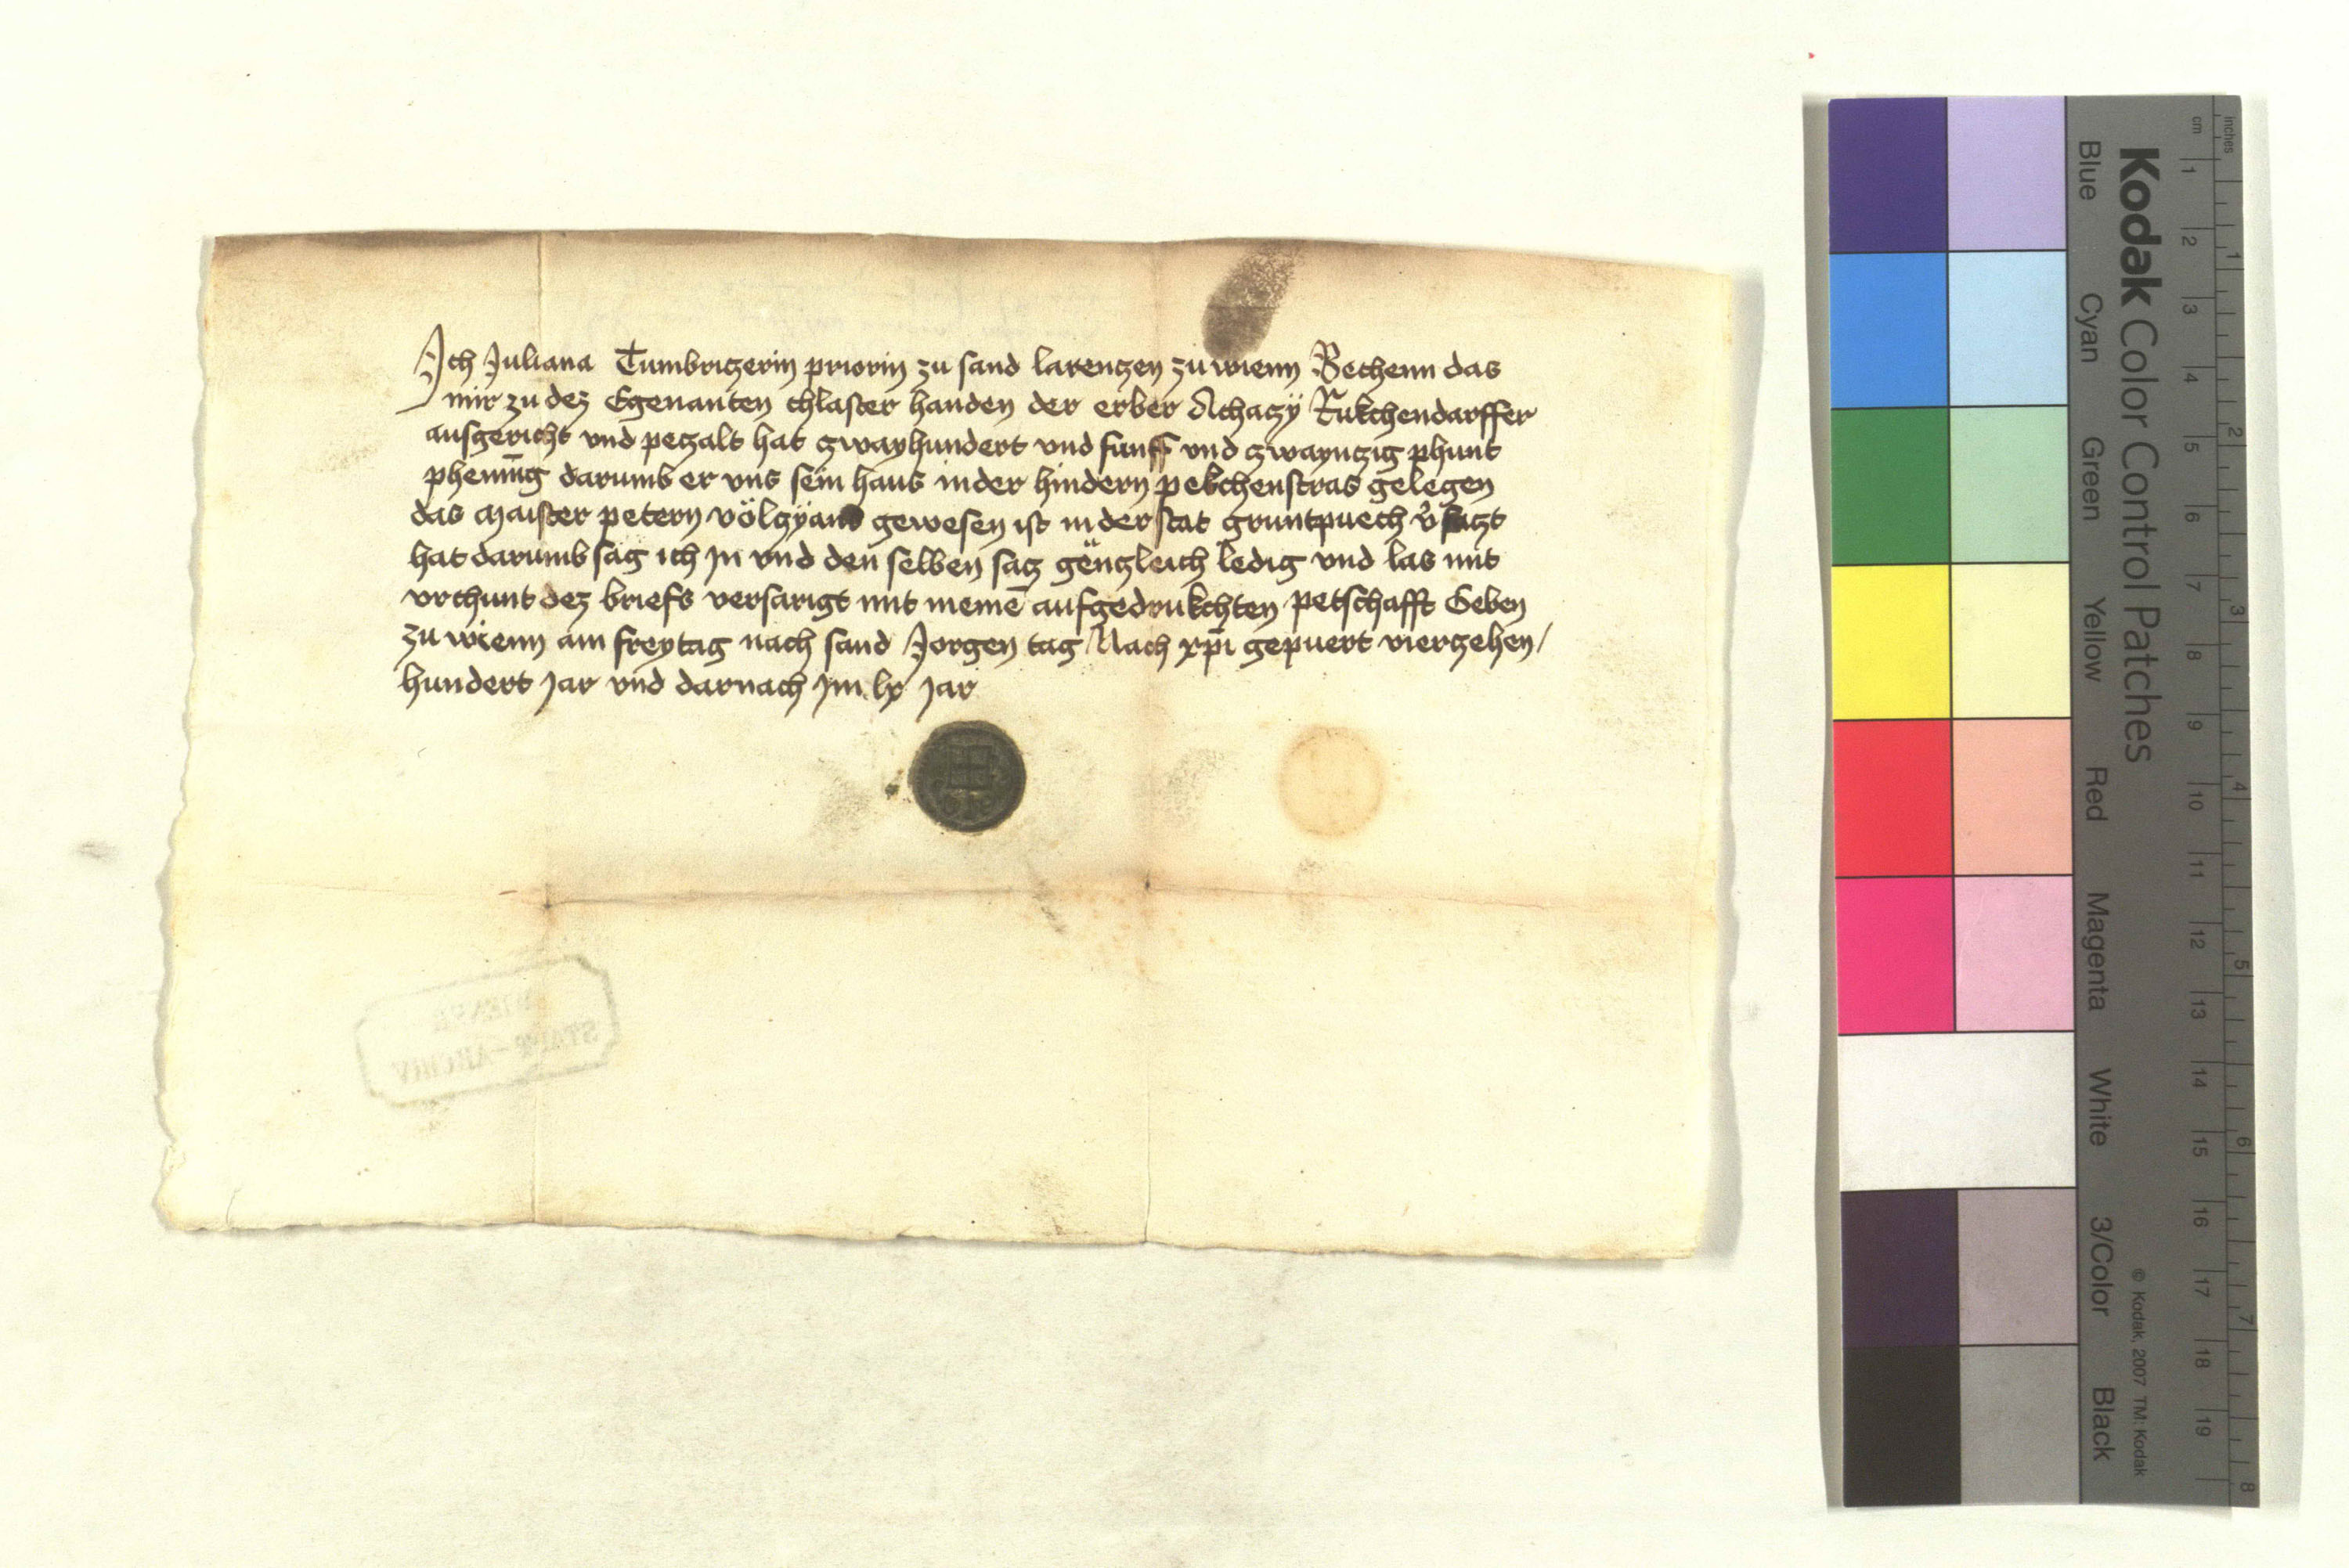 Ich Juliana Tumbriczerin priorin zu sand larenczen zu wienn Bechenn das
mir zu dez Egenanten chlaster handen der erber Achaczÿ Rukchendarffer
ausgericht vnd peczalt hat czwayhundert vnd funff vnd czwaynczig phunt
phening darumb er vns sein haus inder hindern pekchenstras gelegen
das Maister petern völczÿans gewesen ist inder stat gruntpuech v̉saczt
hat darumb sag ich Jn vnd den selben sacz genczleich ledig vnd las mit
vrchunt dez briefs versarigt mit meinē aufgedrukchten petschafft Geben
zu wienn am freytag nach sand Jorgen tag Nach xp̄i gepuert vierczehen/
hundert Jar vnd darnach Jm lx Jar
WIENER
STADT-ARCHIV
Kodak Color Control Patches
Blue Cyan Green Yellow Red Magenta White 3/Color Black
© Kodak, 2007 TM: Kodak
inches 1 2 3 4 5 6 7 8
cm 1 2 3 4 5 6 7 8 9 10 11 12 13 14 15 16 17 18 19